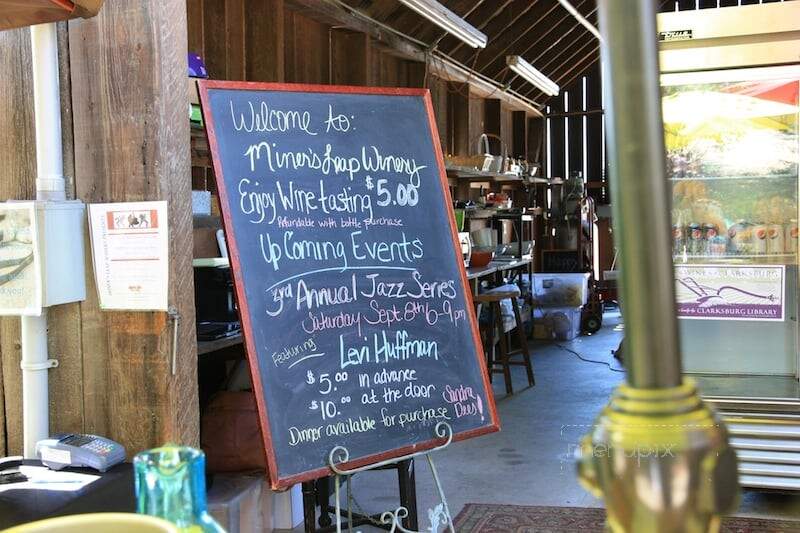 Welcome to:
Miner's Leap Winery
Enjoy Wine tasting $5.00
Refundable with bottle purchase
Up Coming Events
3rd Annual Jazz Series
Saturday Sept 6th 6-9pm
Featuring Levi Huffman
$5.00 in advance
$10.00 at the door
Sandra Dees!
Dinner available for purchase
True
WINES CLARKSBURG
CLARKSBURG LIBRARY
menupix